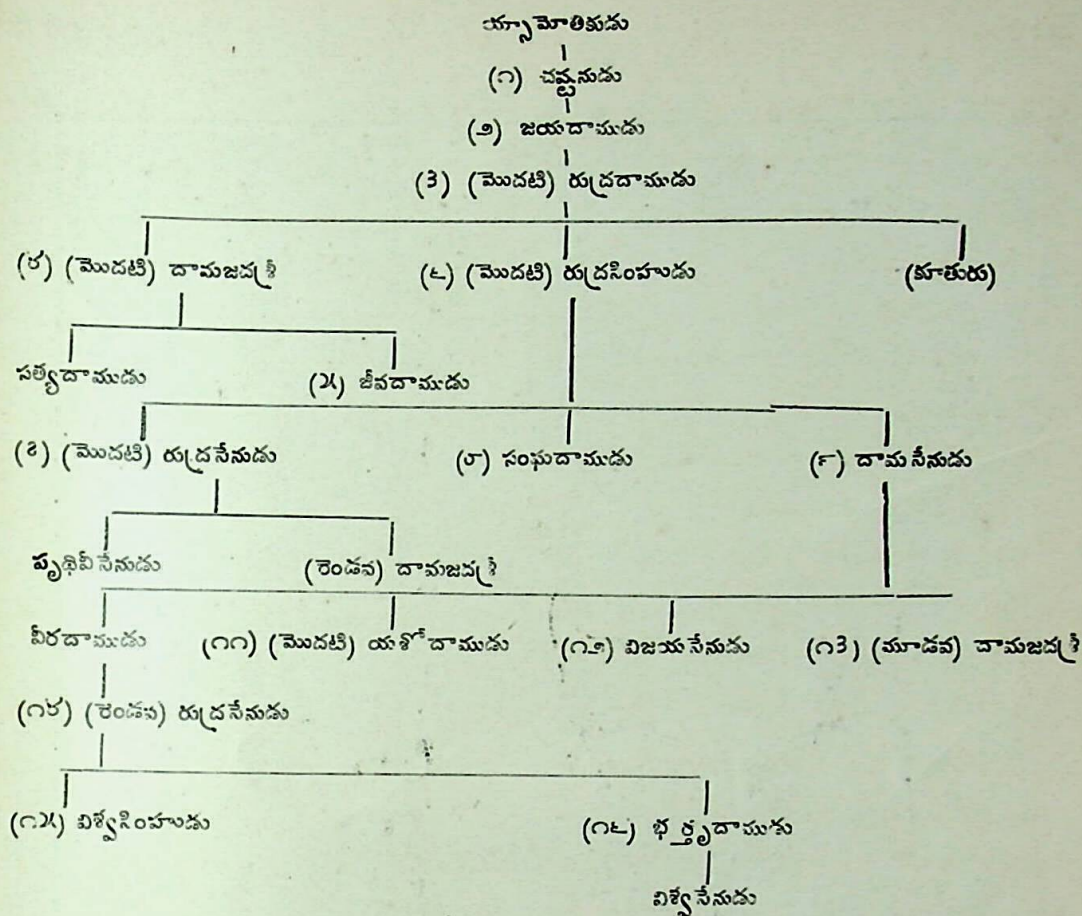 య్సామోతికుడు
(౧) చష్టనుడు
(౨) జయదాముడు
(3) (మొదటి) రుద్రదాముడు
(౪) (మొదటి) దామజదశ్రీ (౬) (మొదటి) రుద్రసింహుడు (కూతురు)
సత్యదాముడు (౫) జీవదాముడు
(౭) (మొదటి) రుద్రసేనుడు (౮) సంఘదాముడు (౯) దామసేనుడు
పృథివీసేనుడు (రెండవ) దామజదశ్రీ
వీరదాముడు (౧౧) (మొదటి) యశోదాముడు (౧౨) విజయసేనుడు (౧3) (మూడవ) దామజదశ్రీ
(౧౪) (రెండవ) రుద్రసేనుడు
(౧౫) విశ్వసింహుడు (౧౬) భర్తృదాముడు
విశ్వసేనుడు